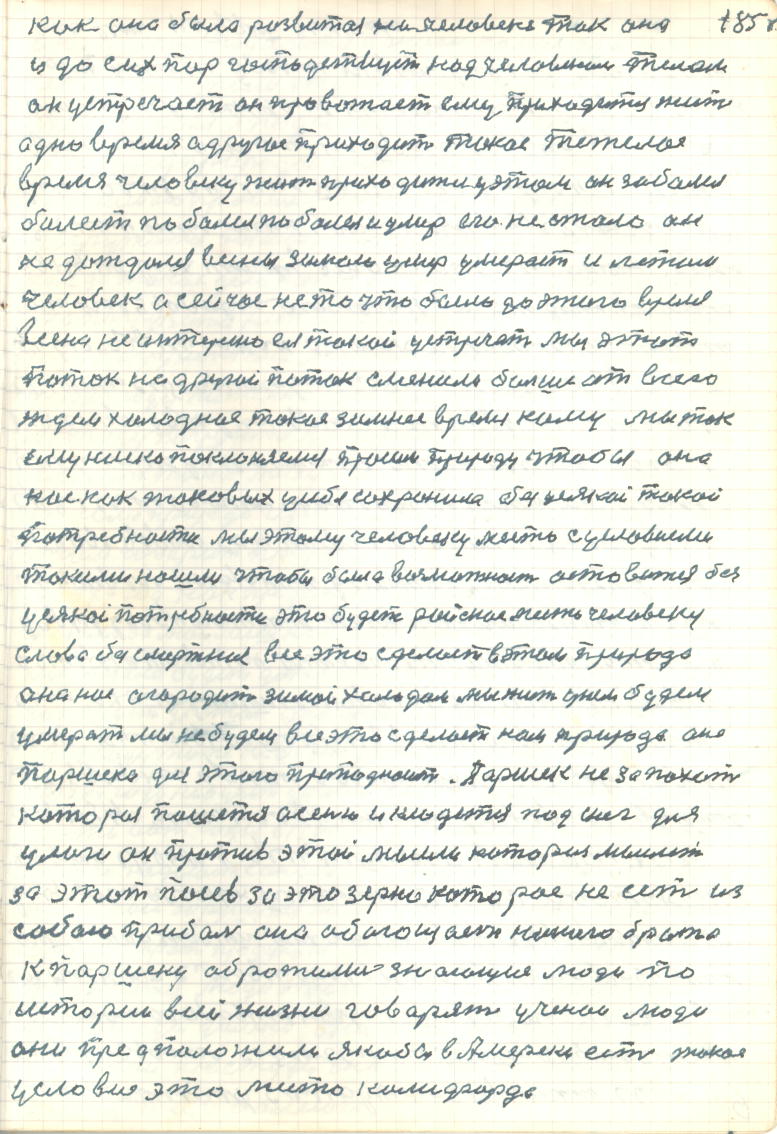 как она была развитая на человека так она 185
и до сих пор господствует над человеком телом
он устречает он провожает ему приходится жить
адно время а другое приходит такое тежелое
время человеку жить приходится у этом он заболел
болеет поболел поболел и умер его не стало он
не дождался весны зимою умер умерает и летом
человек а сейчас не то что было до этого время
весна не интересно ея такой устречать мы этот
поток на другой поток сменили больше от всего
ждем холодное такое зимнее время кому мы так
ему ниско поклоняемся просим природу чтобы она
нас как таковых у себя сохранила без усякой такой
потребности мы этому человеку место с условиями
такими нашли чтобы была возможност остоватся без
усякой потребности это будет райское место человеку
слова бессмертное все это сделает в этом природа
она нас огородит зимой холодом мы жит у нем будем
умерат мы не будем все это сделает нам природа она
Паршека для этого преподносит. Паршек не за пахоту
которая пашется осенью и кладется под снег для
улоги он против этой мысли которая мыслит
за этот посев за это зерно которое не сет из
собою прибал она обогощает нашего брата
К паршеку обротились знающие люди по
истории всей жизни говарят ученои люди
они предположили якобы в Америки есть такое
условие это место калифорда